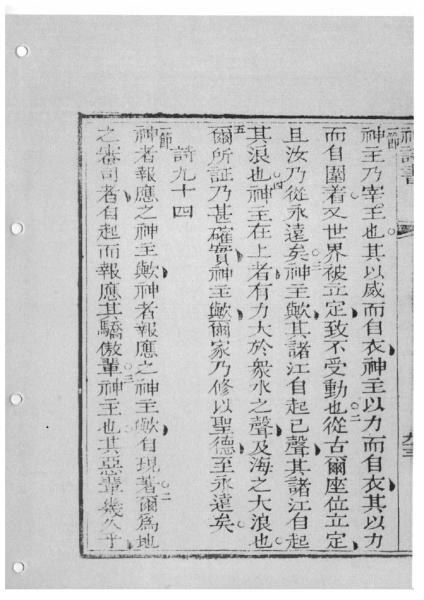 神詩書
節神主乃宰主也其以威而自衣神主以力而自衣其以力
而自圍着又世界被立定致不受動也二從古爾座位立定
且汝乃從永遠矣三神主歟其諸江自起已聲其諸江自起
其浪也四神主在上者有力大於衆水之聲及海之大浪也
五爾所証乃甚確實神主歟爾家乃修以聖德至永遠矣
詩九十四
節神者報應之神主歟神者報應之神主歟自現著二爾爲地
之審司者自起而報應其驕傲輩三神主也其惡輩幾久乎